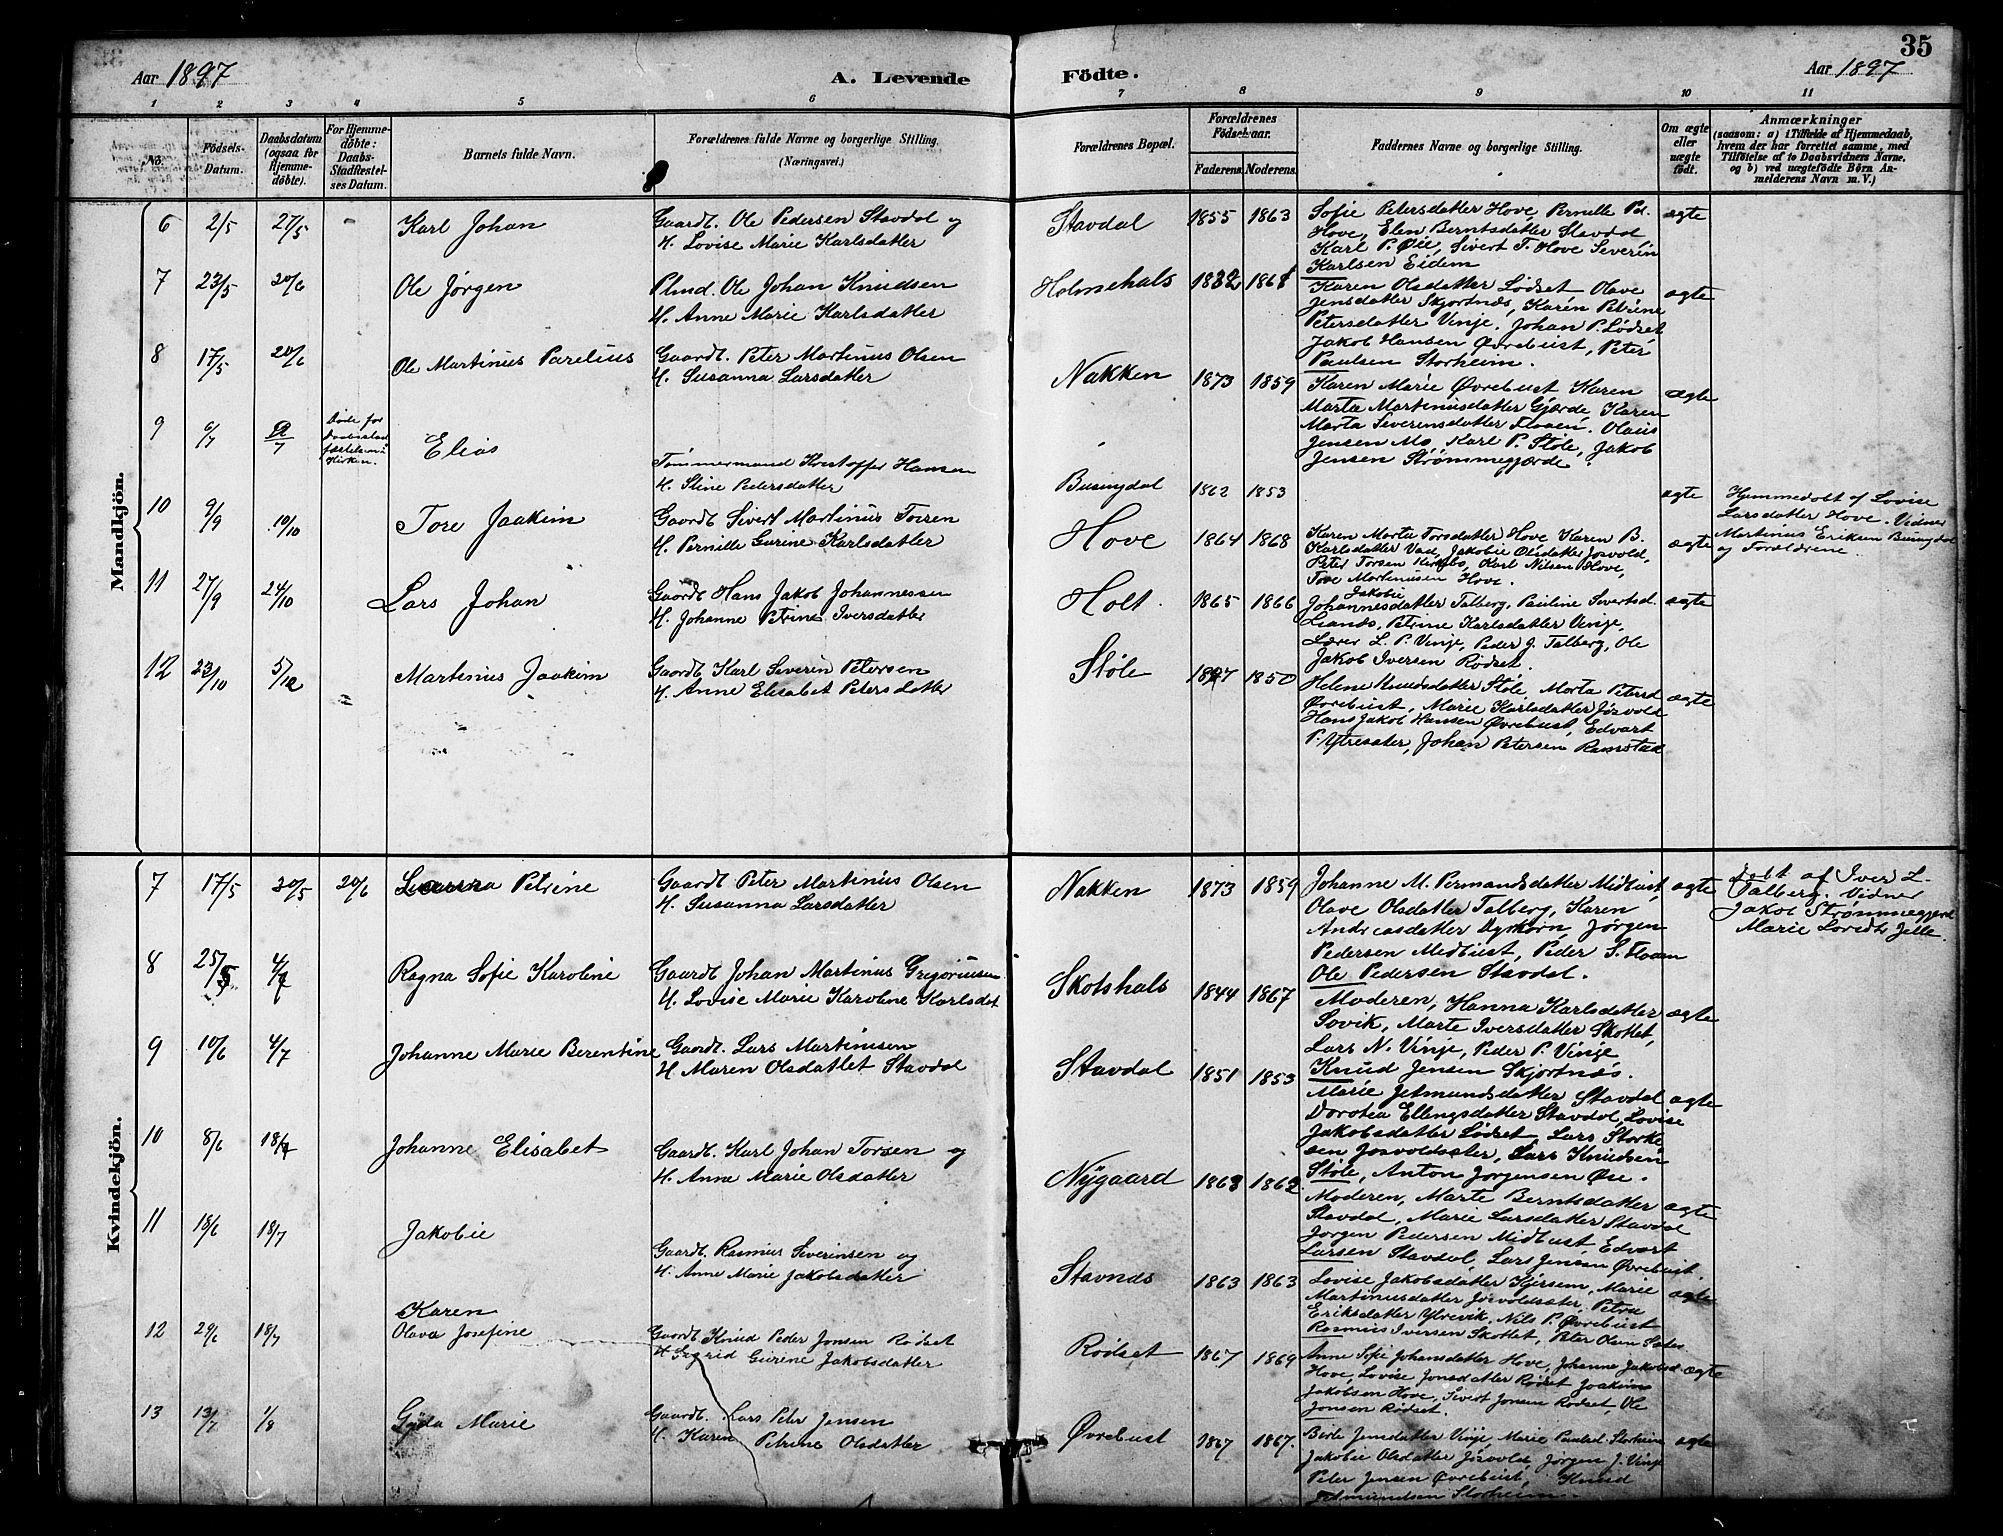 35
Aar 1897
A. Levende
Födte.
Aar 1897
1 2 3 4 5 6 7 8 9 10 11
No.
Födsels-
Datum.
Daabsdatum
(ogsaa for
Hjemme-
døbte).
For Hjemme-
døbte:
Daabs-
Stadfæstel-
ses Datum.
Barnets fulde Navn.
Forældrenes fulde Navne og borgerlige Stilling.
(Næringsvei.)
Forældrenes Bopæl.
Forældrenes
Födselsaar.
Faderens.
Moderens.
Faddernes Navne og borgerlige Stilling.
Om ægte
eller
uægte
født.
Anmærkninger
(saasom: a) i Tilfælde af Hjemmedaab,
hvem der har forrettet samme, med
Tilföielse af to Daabsvidners Navne.
og b) ved uægtefødte Börn An-
melderens Navn m. V.)
Mandkjön.
6 2/5 27/5 - Karl Johan
Gaardb. Ole Pedersen Stavdal og
H. Lovise Marie Karlsdatter
Stavdal 1855 1863
Sofie Petersdatter Hove, Pernille P.
Hove, Elen Berntsdatter Stavdal
Karl P. Øie, Sivert T. Hove Severin
Karlsen Eidem
ægte
7 23/5 20/6 Ole Jørgen
Plmd. Ole Johan Knudsen
H. Anne Marie Karlsdatter
Holmehals 1832 1861
Karen Olsdatter Lødset Olave
Jensdatter Skjortnæs, Karen Petrine
Petersdatter Vinje, Johan P. Lødset
Jakob Hansen Øvrebust, Peter
Paulsen Storheim.
ægte
8 17/5 20/6 Ole Martinus Parelius
Gaardb. Peter Martinus Olsen
H. Susanna Larsdatter
Nakken 1873 1859
Karen Marie Øvrebust Karen
Marta Martinusdatter Gjærde, Karen
Marta Severensdatter Floaen. Olaus
Jensen Mo, Karl P. Støle, Jakob
Jensen Strømmegjærde.
ægte
9 6/7
Døde før
Daabsstad
fæstelsen i
Kirken.
Elias
Tømmermand Kristoffer Hansen
H. Stine Pedersdatter
Busingdal 1862 1853
ægte
Hjemmedøbt af Lovise
Larsdatter Hove. Vidner
Martinus Eriksen Busingdal
og Forældrene.
10 9/9 10/10 Tore Joakim
Gaardb Sivert Martinus Torsen
H. Pernille Gurine Karlsdatter
Hove 1864 1868
Karen Marta Torsdatter Hove Karen B.
Karlsdatter Vad, Jakobie Olsdatter Josvold,
Peter Torsen Kirkebø, Karl Nilsen Hove,
Tore Martinusen Hove.
ægte
11 27/9 24/10 Lars Johan
Gaardb Hans Jakob Johannessen
H. Johanne Petrine Iversdatter
Holt. 1865 1866
Jakobie
Johannesdatter Talberg, Pauline Sivertsd.
Liands, Petrine Karlsdatter Vinje,
Lærer L. P. Vinje, Peder J. Talberg, Ole
Jakob Iversen Rødset.
ægte
12 23/10 5/12 Martinus Joakim
Gaardb Karl Severin Petersen
H. Anne Elisabet Petersdatter
Støle 1850
Helene Knudsdatter Støle, Marta Petersd
Øvrebust, Marie Karlsdatter Josvold
Hans Jakob Hansen Øvrebust, Edvart
P. Ytresæter, Johan Petersen Ramstad
ægte
Kvindekjön.
7 17/5 30/5 20/6 Petrine
Gaardb Peter Martinus Olsen
H. Susanna Larsdatter
Nakken 1873 1859
Johanne M. Permandsdatter Midbust,
Olave Olsdatter Talberg, Karen
Andreasdatter Dyrkorn, Jørgen
Pedersen Midbust, Peder S. Floaen
Ole Pedersen Stavdal.
ægte
døbt af Iver L.
Talberg. Vidner
Jakob Strømmegjærd
Marie Lovedtr Jelle.
8 25/5 4/7 Ragna Sofie Karoline
Gaardb Johan Martinus Gregoriusen
H. Lovise Marie Karoline Karlsdat
Skotshals 1844 1867
Moderen, Hanna Karlsdatter
Sovik, Marte Iversdatter Skottet,
Lars N. Vinje, Peder P. Vinje,
Knud Jensen Skjortnæs.
ægte
9 10/6 4/7 Johanne Marie Berentine
Gaardb. Lars Martinusen
H Maren Olsdatter Stavdal
Stavdal 1851 1853
Marie Jetmundsdatter Stavdal
Dorotea Ellengsdatter Stavdal, Lovise
Jakobsdatter Lødset, Lars Storke
sen Josvoldsæter, Lars Knudsen
Støle, Anton Jørgensen Øie.
ægte
10 8/6 18/7 Johanne Elisabet
Gaardb. Karl Johan Torsen og
H. Anne Marie Olsdatter
Nygaard 1863 1862
Moderen, Marte Berntsdatter
Stavdal, Marie Larsdatter Stavdal
Jørgen Pedersen Midbust, Edvart
Larsen Stavdal, Lars Jensen Øvrebust.
ægte
11 18/6 18/7 Jakobie
Gaardb. Rasmus Severinsen og
H. Anne Marie Jakobsdatter
Stavnes 1863 1863
Lovise Jakobsdatter Hjersem, Marie
Martinusdatter Josvoldsæter, Petra
Eriksdatter Ytrevik, Nils P. Øvrebust
Rasmus Iversen Skottet, Peter Olsen Sæter
ægte
12 29/6 18/7
Karen
Olava Josefine
Gaardb Knud Peder Jonsen Rødset
H Sigrid Gurine Jakobsdatter
Rødset 1867 1869
Anne Sofie Johansdatter Hove, Johanne Jakobsd.
Hove, Lovise Jonsdatter Rødset Joakim
Jakobsen Hove, Sivert Jonsen Rødset, Ole
Jonsen Rødset.
ægte
13 13/7 1/8 Gyda Marie
Gaardb. Lars Peter Jensen
H. Karen Petrine Olsdatter
Øvrebust 1867 1867.
Berte Jensdatter Vinje, Marie Paulsd. Storheim
Jakobie Olsdatter Josvold, Jørgen J. Vinje
Peter Jensen Øvrebust, Knud
Jetmundsen Storheim.
ægte